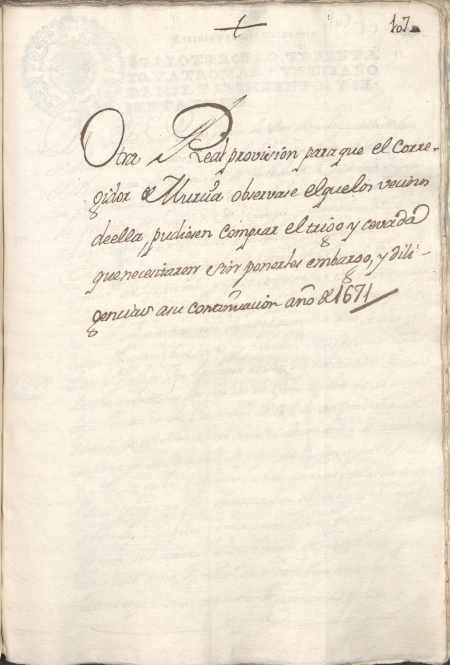 107
Otra Real provision para que el Corre-
gidor de Murcia observase el que los vecinos
de ella, pudiesen comprar el trigo y cevada
que necesitaron sin ponerles embargo, y dili-
gencias a su continuacion año de 1671